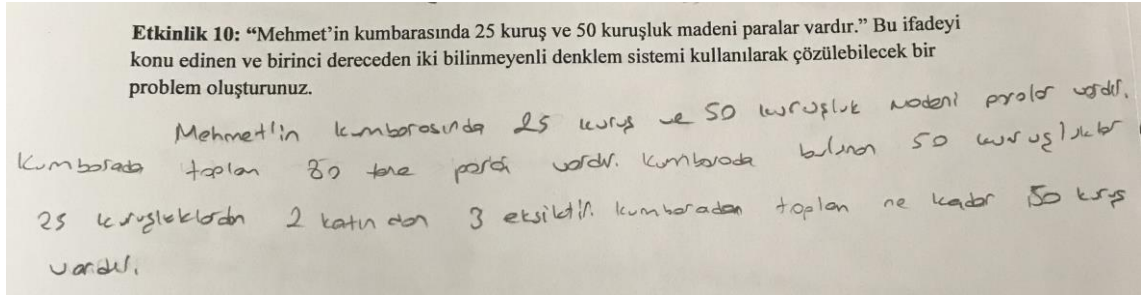 Etkinlik 10: “Mehmet’in kumbarasında 25 kuruş ve 50 kuruşluk madeni paralar vardır.” Bu ifadeyi
konu edinen ve birinci dereceden iki bilinmeyenli denklem sistemi kullanılarak çözülebilecek bir
problem oluşturunuz.
Mehmet'in kumbarasında 25 kuruş ve 50 kuruşluk madeni paralar vardır.
Kumbarada toplam 80 tane para vardır. Kumbarada bulunan 50 kuruşluklar
25 kuruşluklardan 2 katından 3 eksiktir. kumbaradan toplam ne kadar 50 kuruş
vardır.